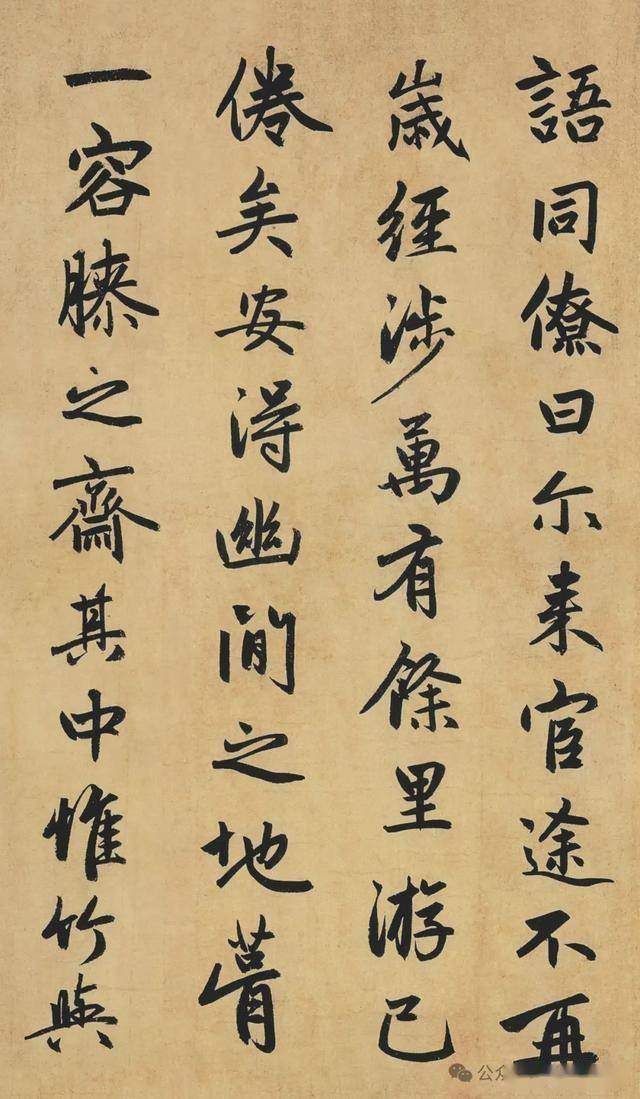 語同僚曰尔来官途不再
歲經涉萬有餘里游已
倦矣安得幽閒之地葺
一容膝之齋其中惟竹與
公